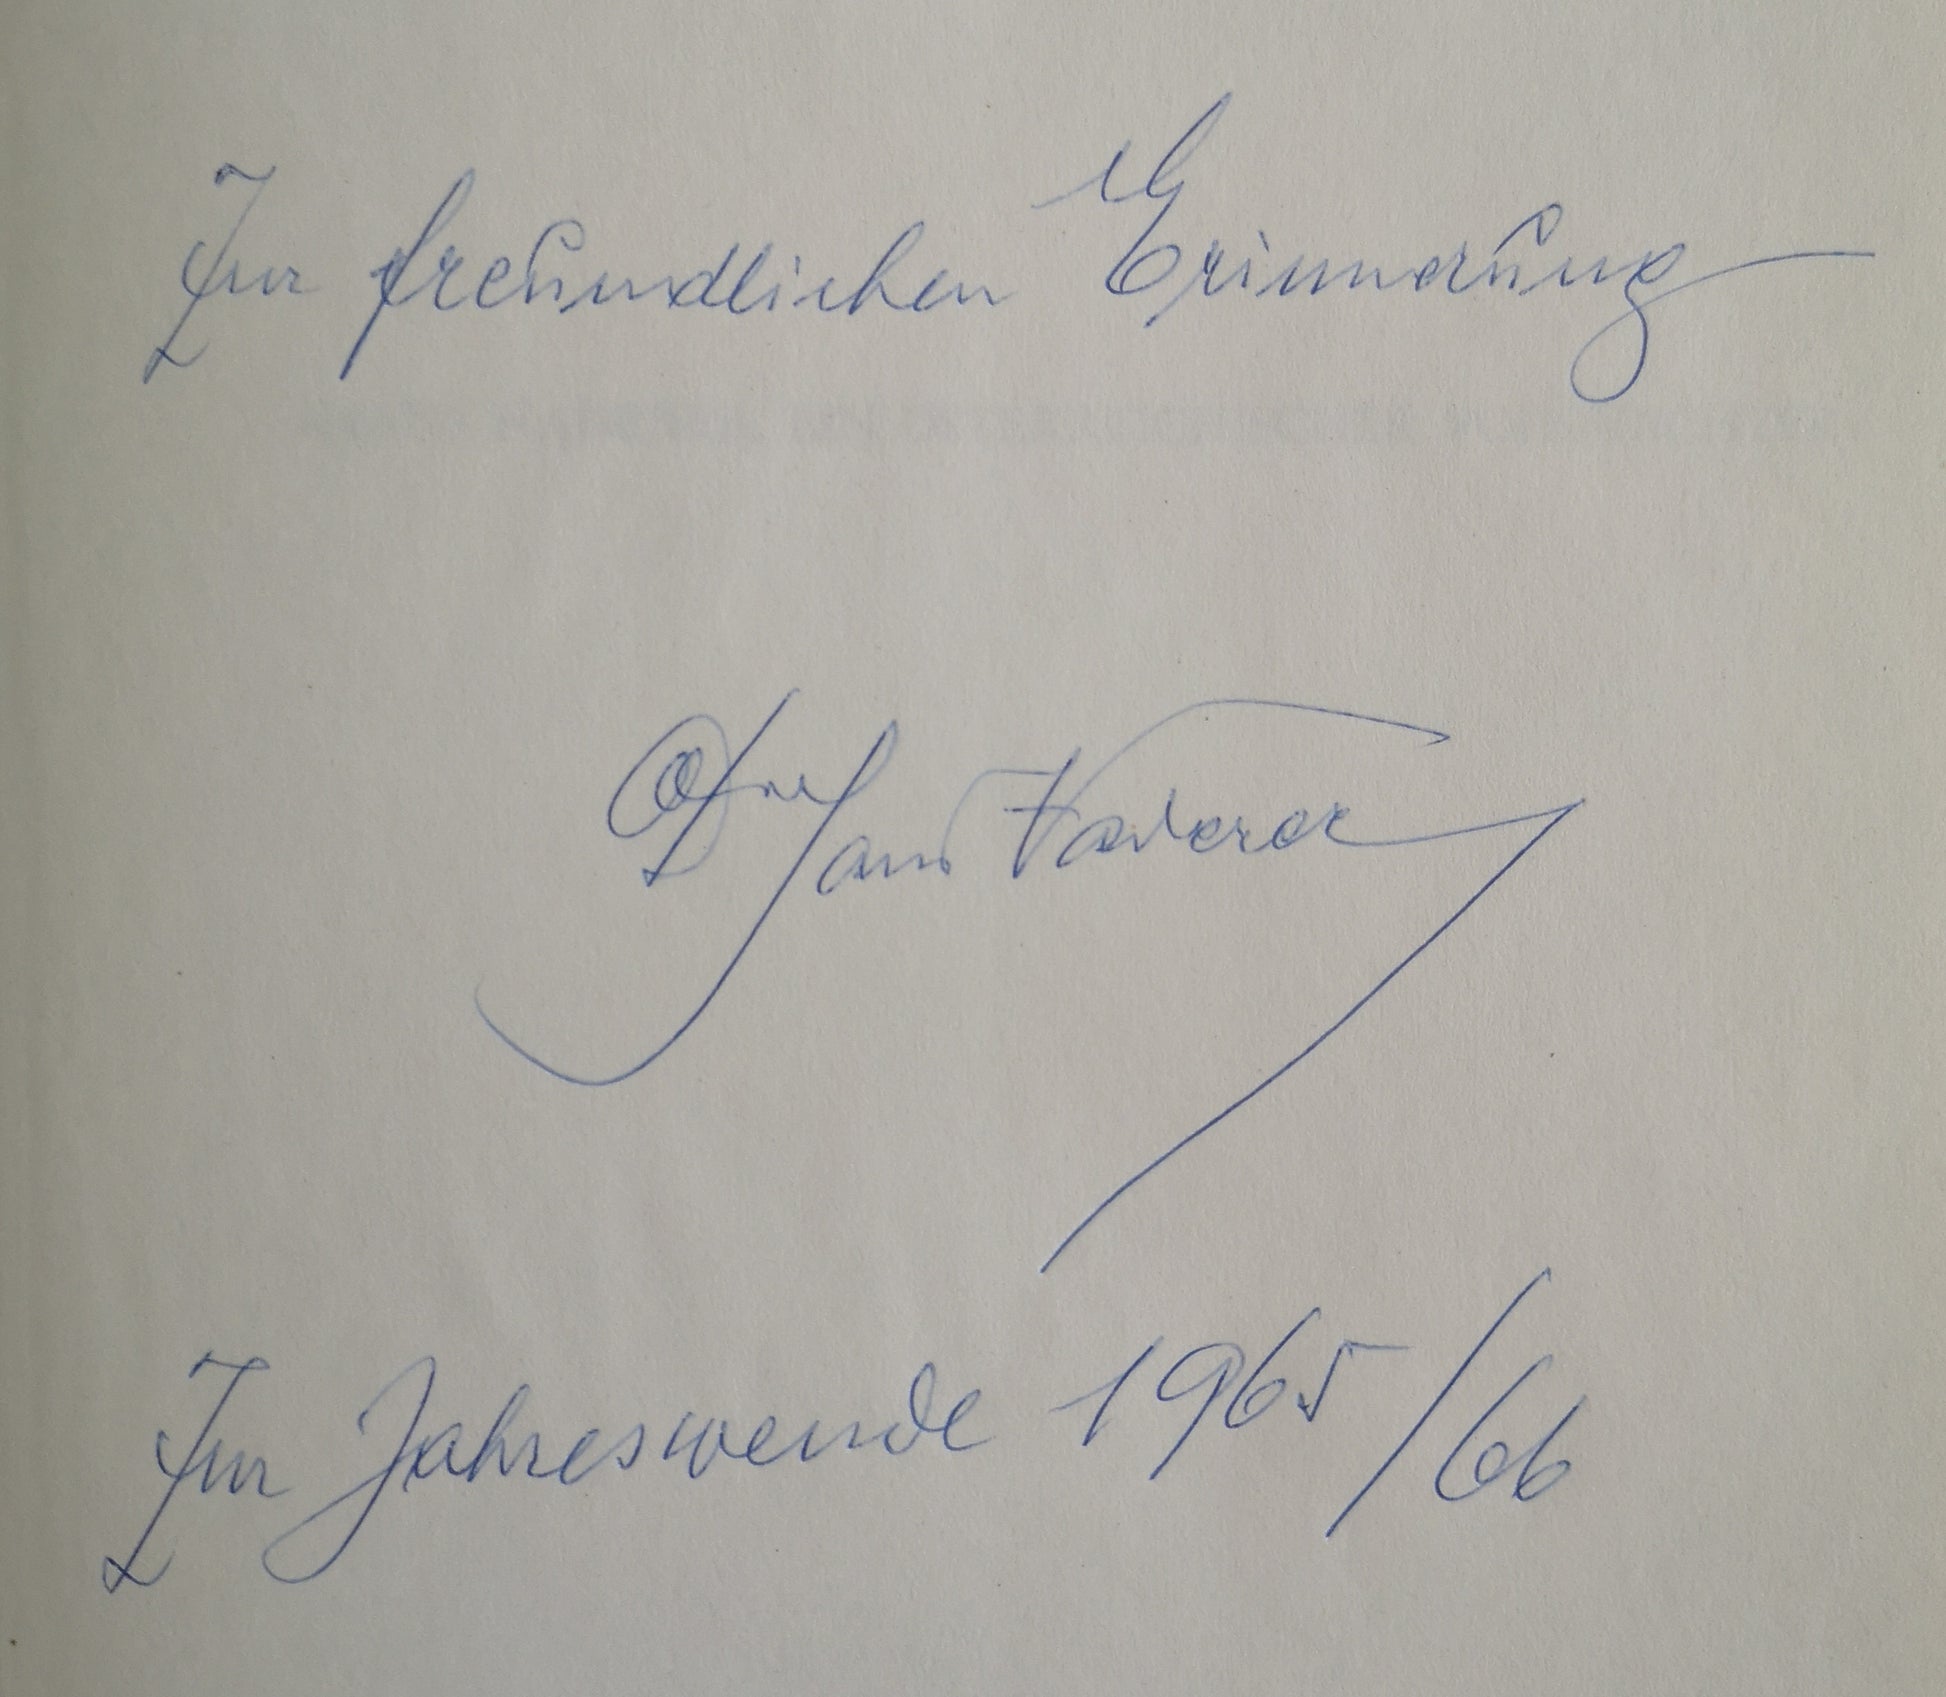 Zur freundlichen Erinnerung
Hans
Zur Jahreswende 1965/66